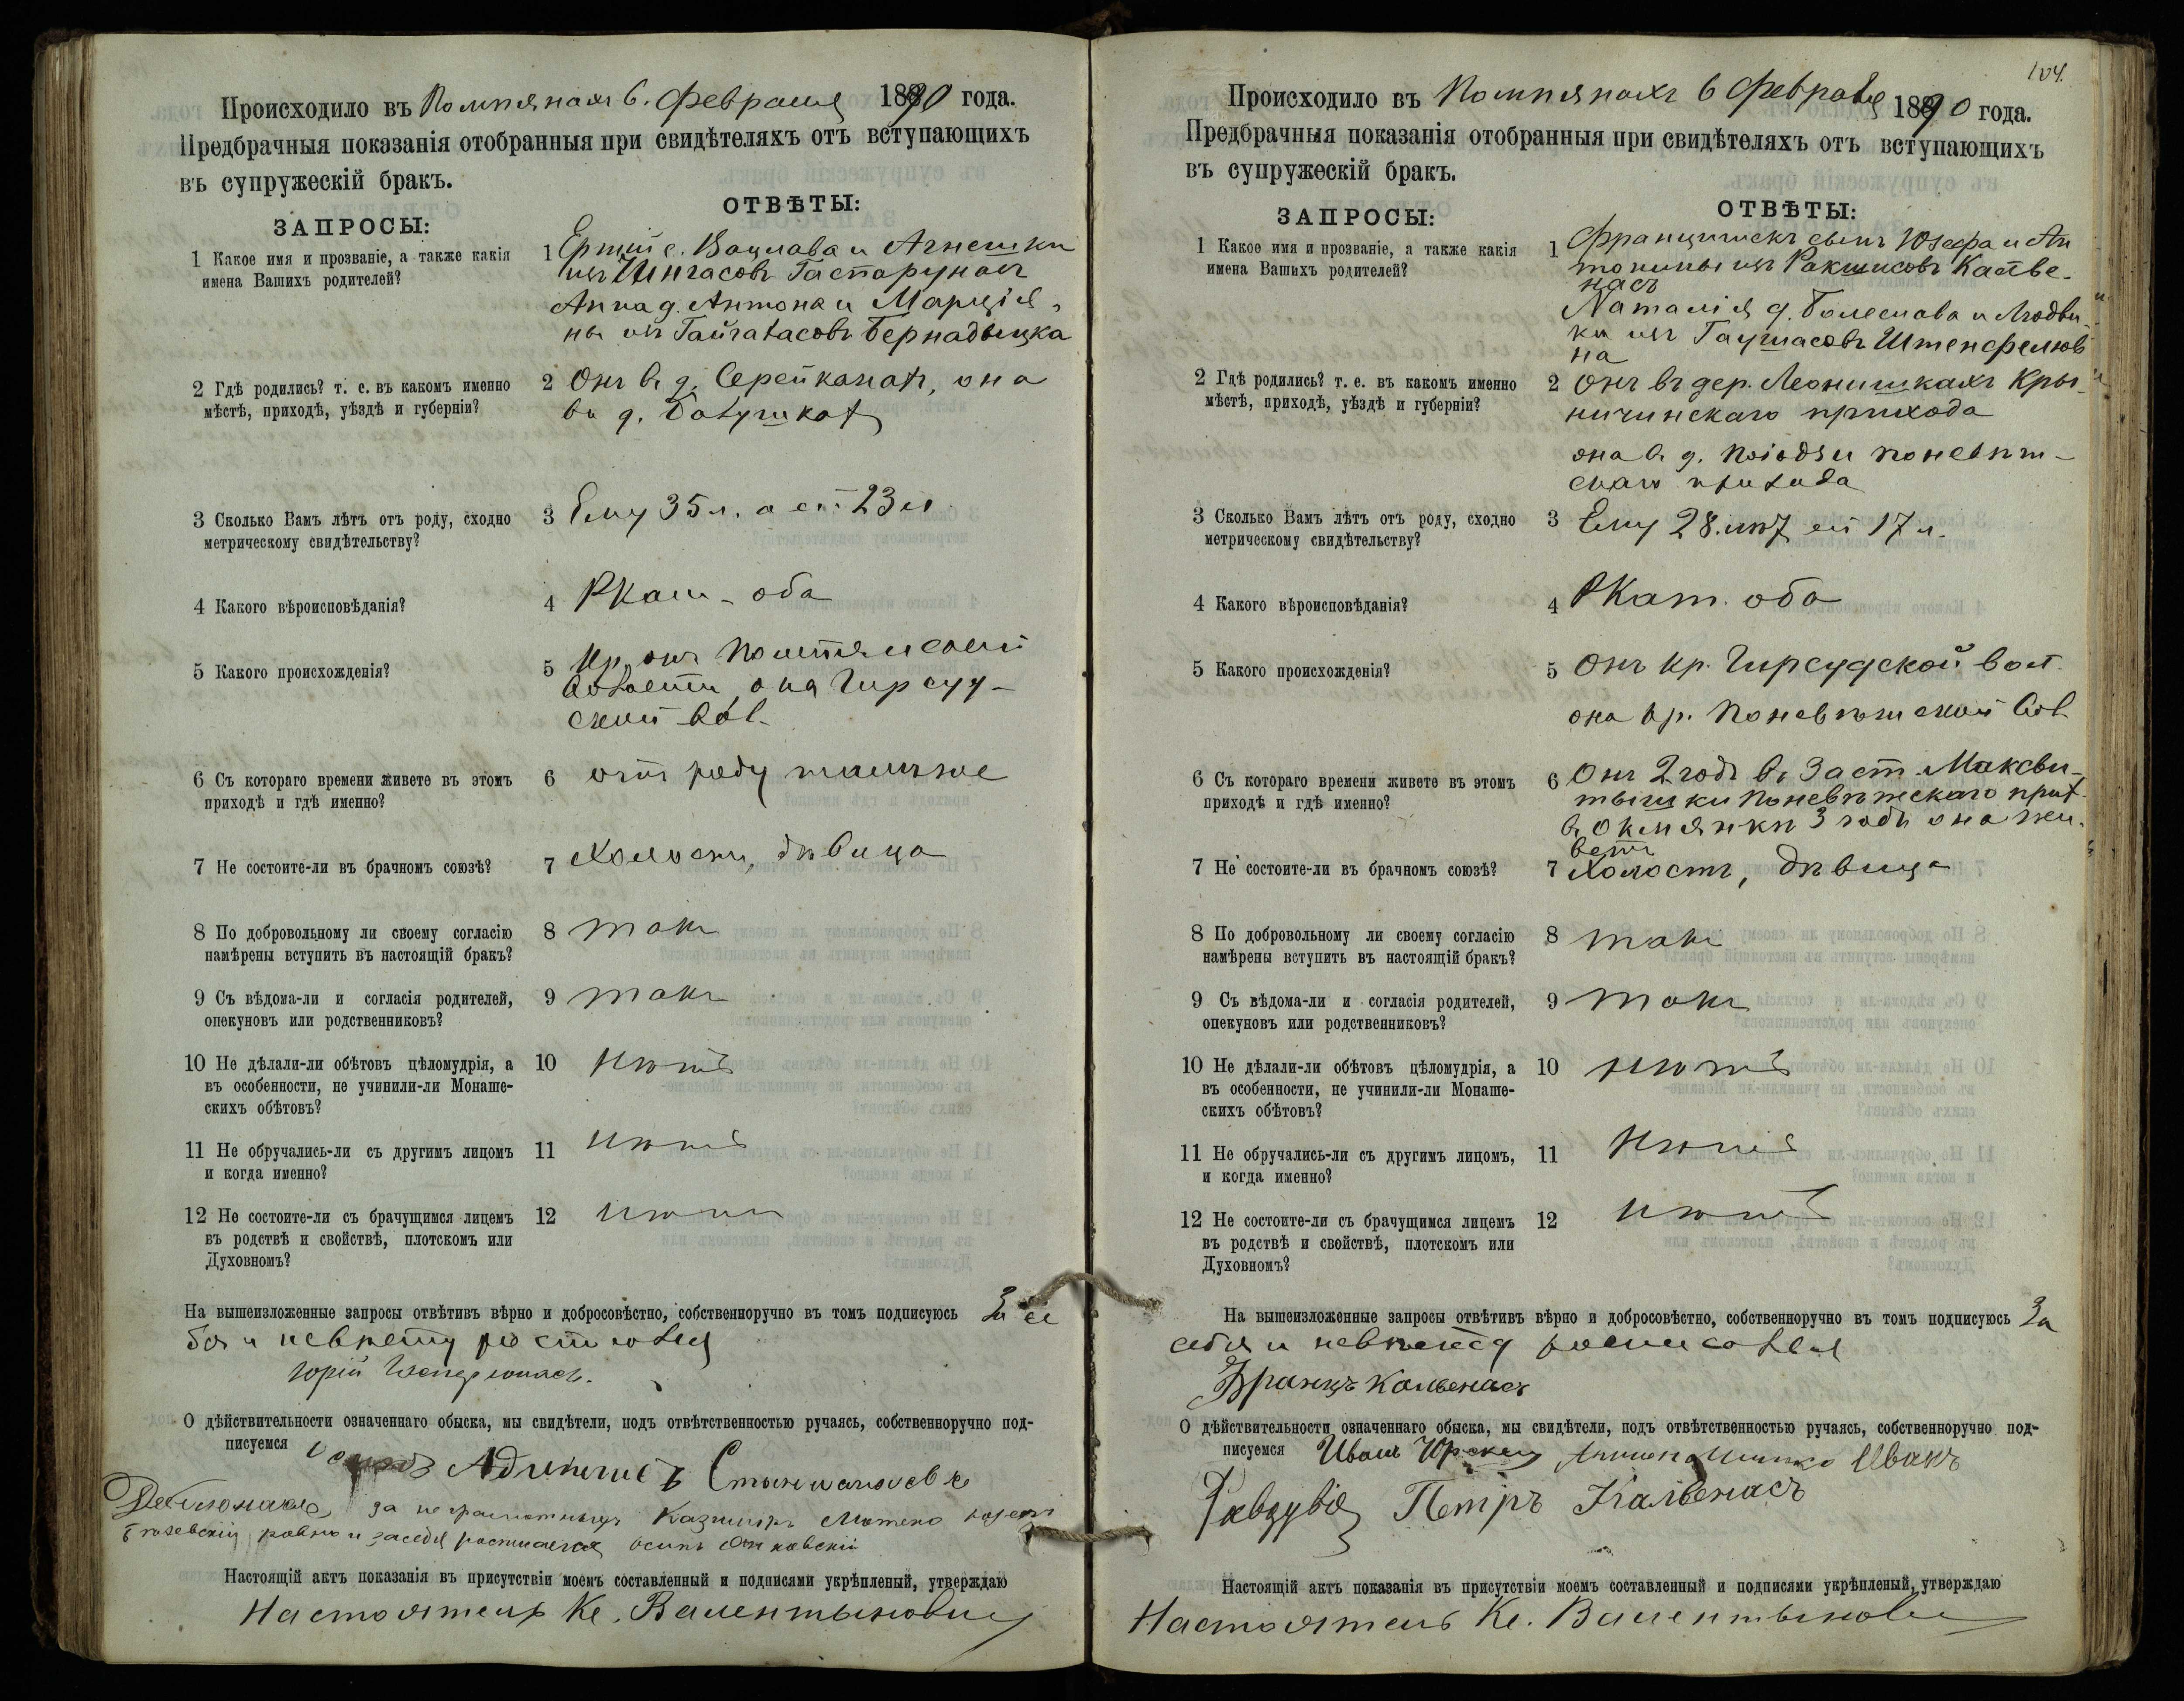 Происходило въ Помпянахъ 6. Февраля 1890 года.
Предбрачныя показанія отобранныя при свидѣтеляхъ отъ вступающихъ
въ супружескій бракъ.
ЗАПРОСЫ:
ОТВѢТЫ:
1 Какое имя и прозваніе, а также какія
имена Вашихъ родителей?
1 с. Вацлава и Агнешки
изъ
Анна д. Антона и Марціа-
ны изъ
2 Гдѣ родились? т. е. въ какомъ именно
мѣстѣ, приходѣ, уѣздѣ и губерніи?
2 Онъ в д. она
въ д.
3 Сколько Вамъ лѣтъ отъ роду, сходно
метрическому свидѣтельству?
3 Ему 35 л. а ей 23 л
4 Какого вѣроисповѣданія?
4 РКат - оба
5 Какого происхожденія?
5 Кр. онъ
волости, она Гирсуд-
ской вол.
6 Съ котораго времени живете въ этомъ
приходѣ и гдѣ именно?
6 отъ роду тамъже
7 Не состоите-ли въ брачномъ союзѣ?
7 Холостъ, дѣвица
8 По добровольному ли своему согласію
намѣрены вступить въ настоящій бракъ?
8 такъ
9 Съ вѣдома-ли и согласія родителей,
опекуновъ или родственниковъ?
9 такъ
10 Не дѣлали-ли обѣтовъ цѣломудрія, а
въ особенности, не учинили-ли Монаше-
скихъ обѣтовъ?
10 нѣтъ
11 Не обручались-ли съ другимъ лицомъ
и когда именно?
11 нѣтъ
12 Не состоите-ли съ брачущимся лицемъ
въ родствѣ и свойствѣ, плотскомъ или
Духовномъ?
12 нѣтъ
На вышеизложенные запросы отвѣтивъ вѣрно и добросовѣстно, собственноручно въ томъ подписуюсь За се
бя и невѣсту
Юрій
О дѣйствительности означеннаго обыска, мы свидѣтели, подъ отвѣтственностью ручаясь, собственноручно под-
писуемся
за неграмотныхъ Казимиръ
равно и за себя Осипъ
Настоящій актъ показанія въ присутствіи моемъ составленный и подписями укрѣпленый, утверждаю
Настоятель Кс. Валентыновичъ
104.
Происходило въ Помпянахъ 6 Февраля 1890 года.
Предбрачныя показанія отобранныя при свидѣтеляхъ отъ вступающихъ
въ супружескій бракъ.
ЗАПРОСЫ:
ОТВѢТЫ:
1 Какое имя и прозваніе, а также какія
имена Вашихъ родителей?
1 Францишекъ сынъ Юзефа и Ан
тонины изъ Ракшисовъ Калве-
насъ
Наталія д. Болеслава и Людви-
ки изъ
на
2 Гдѣ родились? т. е. въ какомъ именно
мѣстѣ, приходѣ, уѣздѣ и губерніи?
2 Онъ въ дер. Леонишкахъ Кры
ничинскаго прихода
она въ д. Поневѣж-
скаго прихода
3 Сколько Вамъ лѣтъ отъ роду, сходно
метрическому свидѣтельству?
3 Ему 28. лѣт ей 17 л.
4 Какого вѣроисповѣданія?
4 РКат. оба
5 Какого происхожденія?
5 Онъ кр. Гирсудской вол.
она кр. Поневѣжской вол
6 Съ котораго времени живете въ этомъ
приходѣ и гдѣ именно?
6 Онъ 2 года въ заст. Максви-
тышки Поневѣжскаго прих.
в Окмянки 3 года она жи-
ветъ
7 Не состоите-ли въ брачномъ союзѣ?
7 Холостъ, дѣвица
8 По добровольному ли своему согласію
намѣрены вступить въ настоящій бракъ?
8 такъ
9 Съ вѣдома-ли и согласія родителей,
опекуновъ или родственниковъ?
9 такъ
10 Не дѣлали-ли обѣтовъ цѣломудрія, а
въ особенности, не учинили-ли Монаше-
скихъ обѣтовъ?
10 нѣтъ
11 Не обручались-ли съ другимъ лицомъ,
и когда именно?
11 нѣтъ
12 Не состоите-ли съ брачущимся лицемъ
въ родствѣ и свойствѣ, плотскомъ или
Духовномъ?
12 нѣтъ
На вышеизложенные запросы отвѣтивъ вѣрно и добросовѣстно, собственноручно въ томъ подписуюсь За
себя и невѣсту росписался
Францъ Кальвенасъ
О дѣйствительности означеннаго обыска, мы свидѣтели, подъ отвѣтственностью ручаясь, собственноручно под-
писуемся Иванъ Иванъ
Петръ Кальвенасъ
Настоящій актъ показанія въ присутствіи моемъ составленный и подписями укрѣпленый, утверждаю
Настоятель Кс. Валентынови